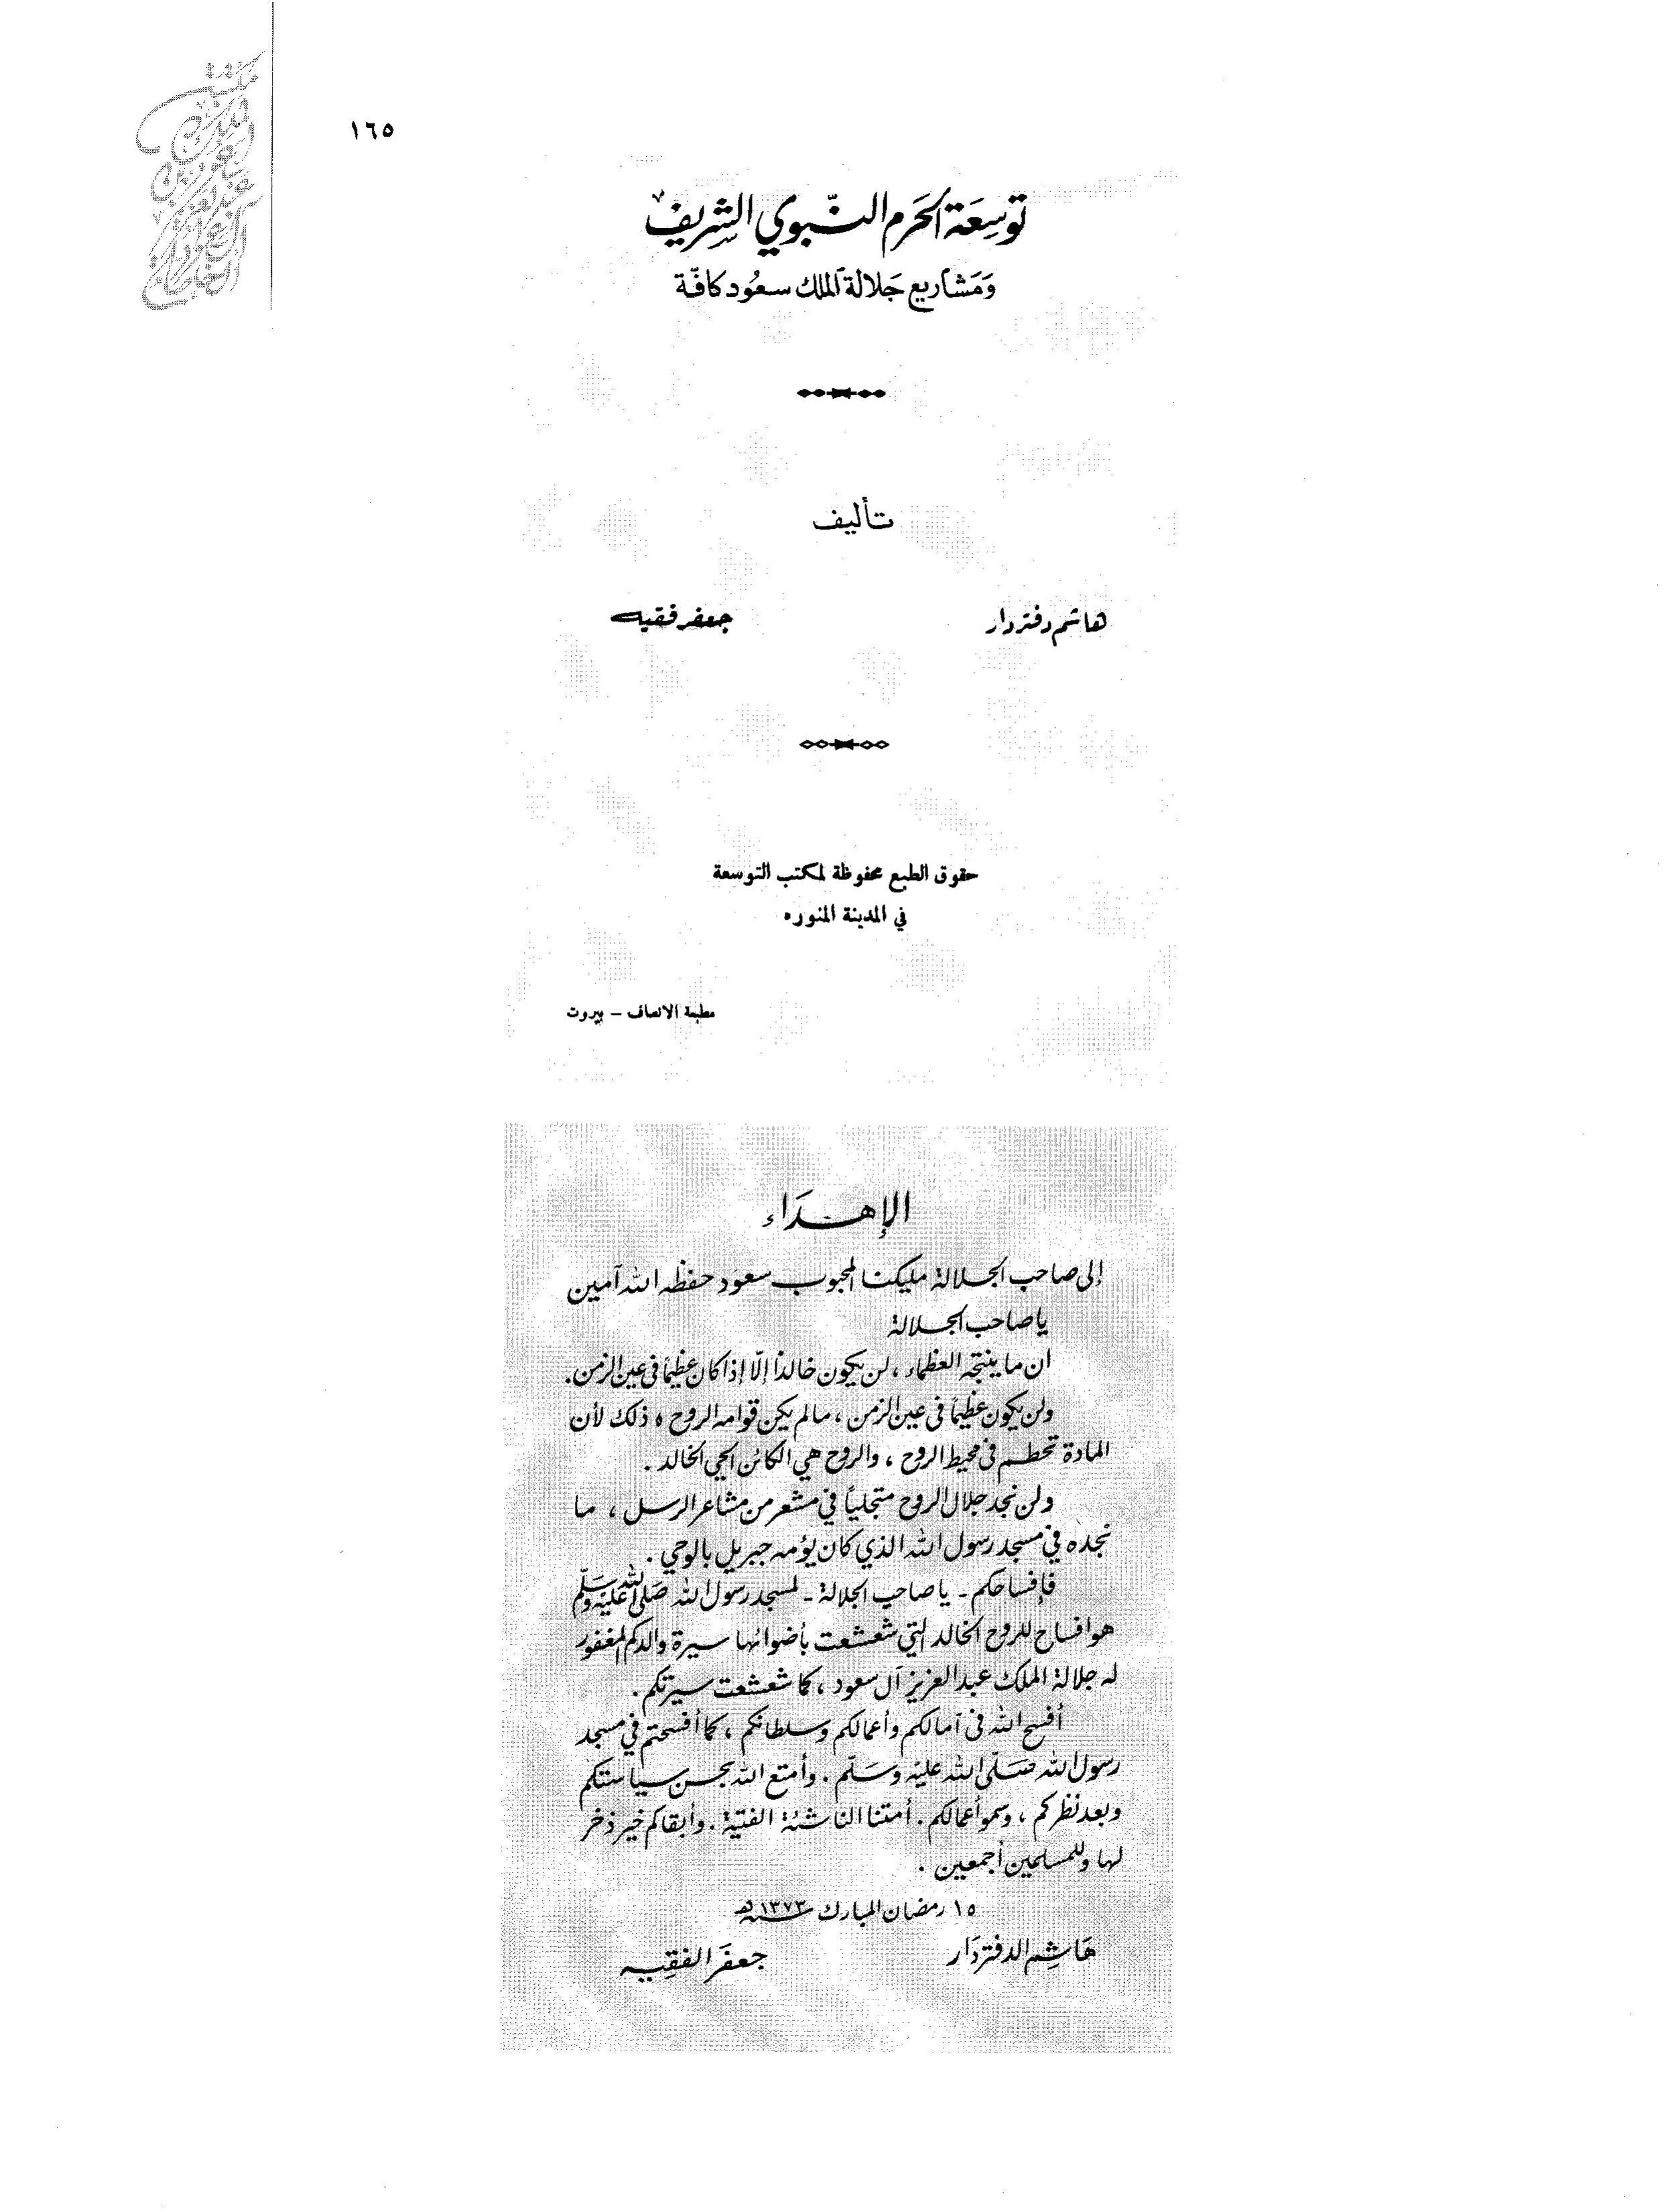 مكتبة
الملك
سعود بن
عبد العزيز
آل سعود
الخاصة
١٦٥
توسِعَة الحَرم النّبوي الشِريف
وَمَشاريع جَلالة الملك سعُود كافّة
تأليف
هاشم دفتردار
جعفر فقيه
حقوق الطبع محفوظة لمكتب التوسعة
في المدينة المنوره
مطبعة الانصاف – بيروت
الإهـداء
إلى صاحب الجلالة مليكنا المحبوب سعود حفظه الله آمين
يا صاحب الجلالة
ان ما ينتجه العظماء، لن يكون خالداً إلّا إذا كان عظيماً في عين الزمن.
ولن يكون عظيماً في عين الزمن، ما لم يكن قوامه الروح، ذلك لأن
المادة تحطم في محيط الروح، والروح هي الكائن الحي الخالد.
ولن نجد جلال الروح متجلياً في مشعر من مشاعر الرسل، ما
نجده في مسجد رسول الله الذي كان يؤمه جبريل بالوحي.
فإفساحكم - يا صاحب الجلالة - لمسجد رسول الله صَلى الله عليْه وسَلّم
هو افساح للروح الخالد التي شعشعت بأضوائها سيرة والدكم المغفور
له جلالة الملك عبد العزيز آل سعود، كما شعشعت سيرتكم.
أفسح الله في آمالكم وأعمالكم وسلطانكم، كما أفسحتم في مسجد
رسول الله صَلّى الله عليْه وسَلّم. وأمتع الله بحسن سياستكم
وبعد نظركم، وسمو أعمالكم. أمتنا الناشئة الفتية. وأبقاكم خير ذخر
لها وللمسلمين أجمعين.
١٥ رمضان المبارك سنة ١٣٧٣هـ
هَاشِم الدفتردَار
جعفَر الفقِيه